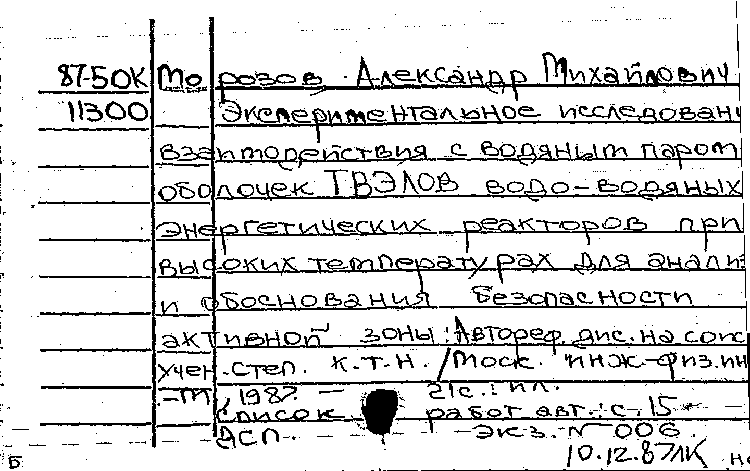 87-50К Морозов Александр Михайлович
11300 Экспериментальное исследован
взаимодействия с водяным паром
оболочек ТВЭЛОВ водо-водяных
энергетических реакторов при
высоких температурах для анали
и обоснования безопасности
активной зоны: Автореф. дис. на соис
учен. степ. к.т.н. / Моск. инж.-физ. ин
-т, 1987. - 21с.: ил.
Список работ авт.: с. 15 -
ДСП. - Экз. № 006.
Б 10.12.87ЛК не